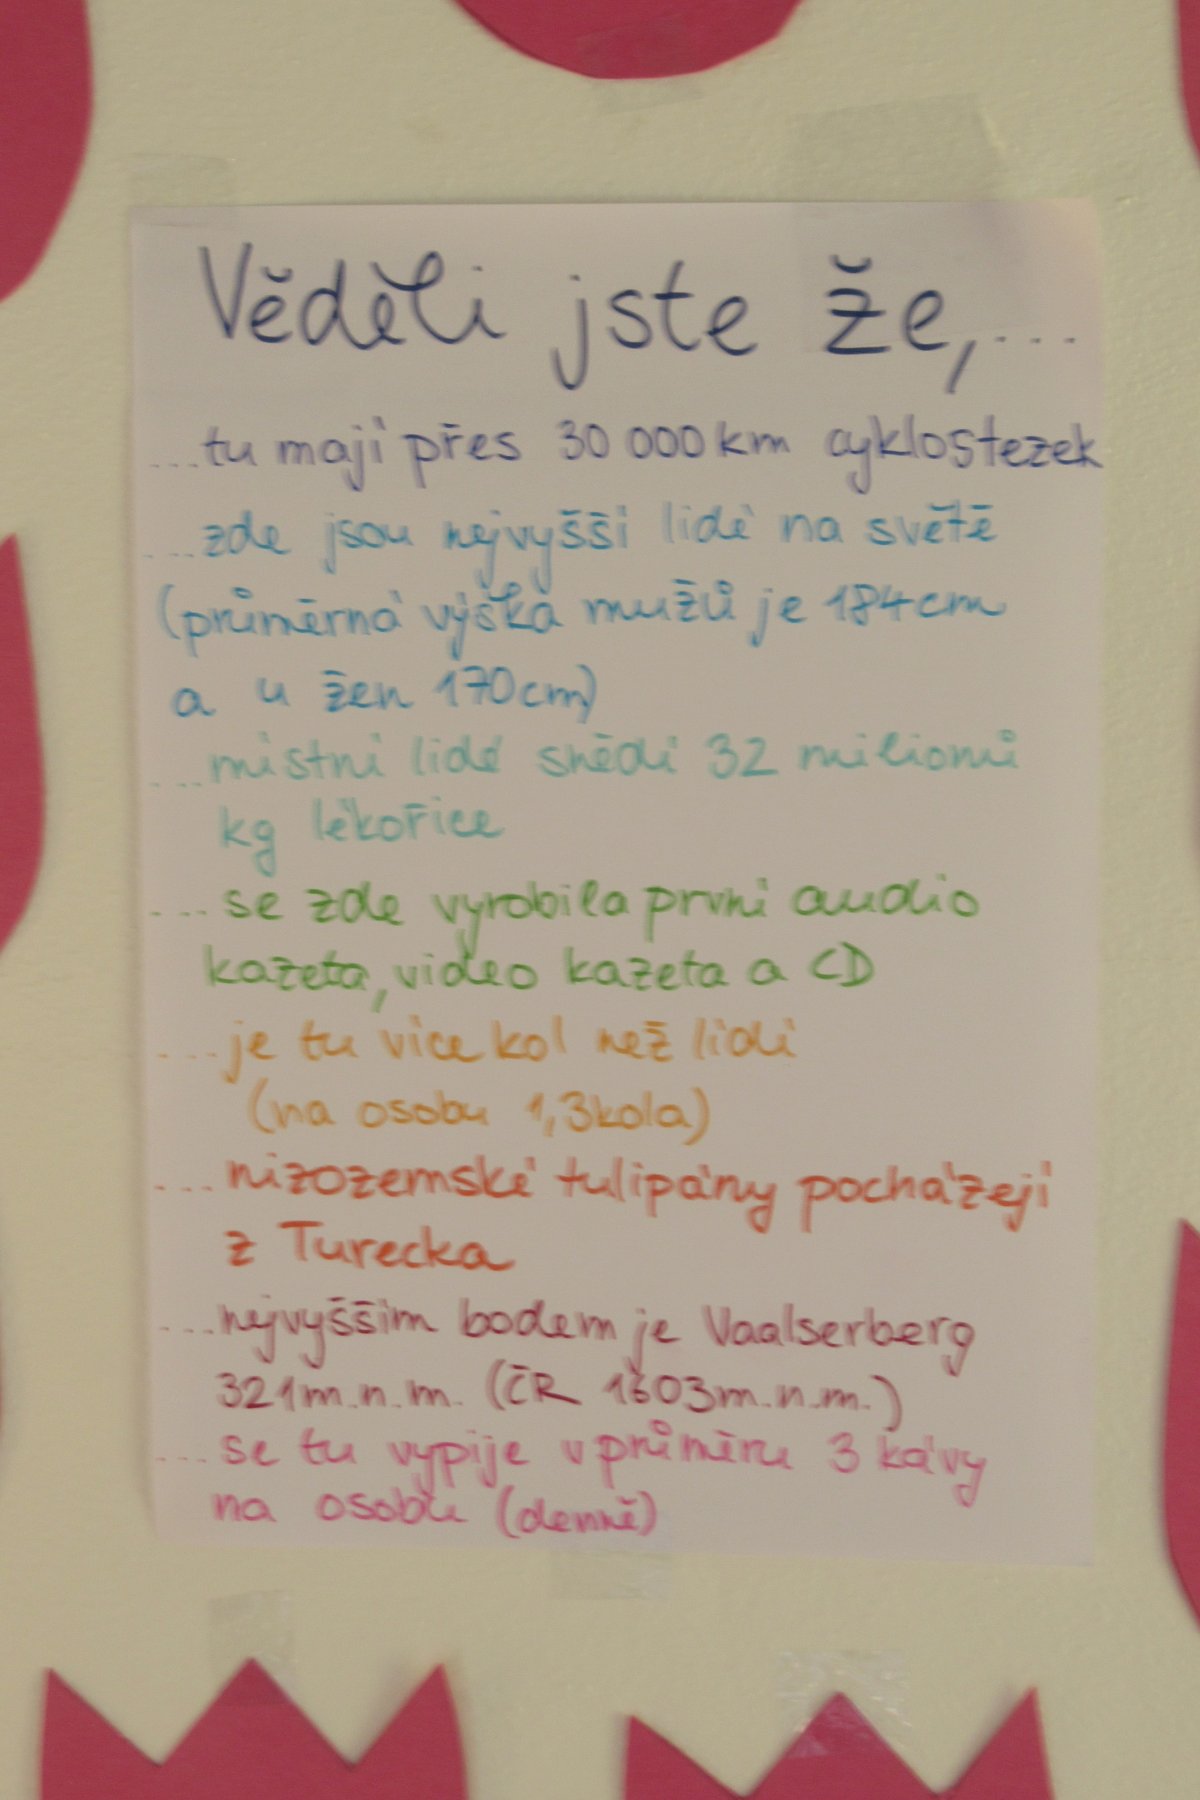 Věděli jste že,...
...tu mají přes 30 000 km cyklostezek
...zde jsou nejvyšší lidé na světě
(průměrná výška mužů je 184cm
a u žen 170cm)
...místní lidé snědí 32 milionů
kg lékořice
...se zde vyrobila první audio
kazeta, video kazeta a CD
...je tu více kol než lidí
(na osobu 1,3kola)
...nizozemské tulipány pocházejí
z Turecka
...nejvyšším bodem je Vaalserberg
321m.n.m. (ČR 1603m.n.m.)
...se tu vypije v průměru 3 kávy
na osobu (denně)